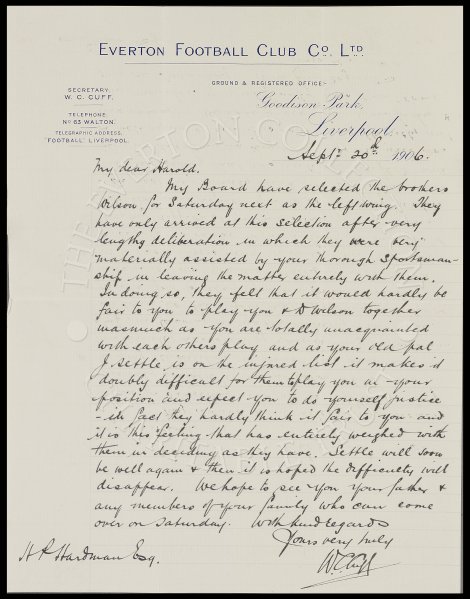 EVERTON FOOTBALL CLUB CO. LTD
SECRETARY
W. C. CUFF.
TELEPHONE
NO 63 WALTON.
TELEGRAPHIC ADDRESS,
FOOTBALL LIVERPOOL.
GROUND & REGISTERED OFFICE:-
Goodison Park,
Liverpool,
Septr 20th 1906.
My dear Harold.
My Board have selected the brothers
Wilson for Saturday next as the left wing. They
have only arrived at this selection after very
lengthy deliberation in which they were very
materially assisted by your thorough Sportsman-
ship in leaving the matter entirely with them.
In doing so, they felt that it would hardly be
fair to you to play you & D Wilson together
inasmuch as you are totally unacquainted
with each others play and as your old pal
J. Settle is on the injured list it makes it
doubly difficult for them to play you in your
position and expect you to do yourself justice
- in fact they hardly think it fair to you and
it is this feeling that has entirely weighed with
them in deciding as they have. Settle will soon
be well again & then it is hoped the difficulty will
disappear. We hope to see you your father &
any members of your family who can come
over on Saturday. With kind regards
Yours very truly
W C Cuff
H P Hardman Esq.
THE EVERTON CO